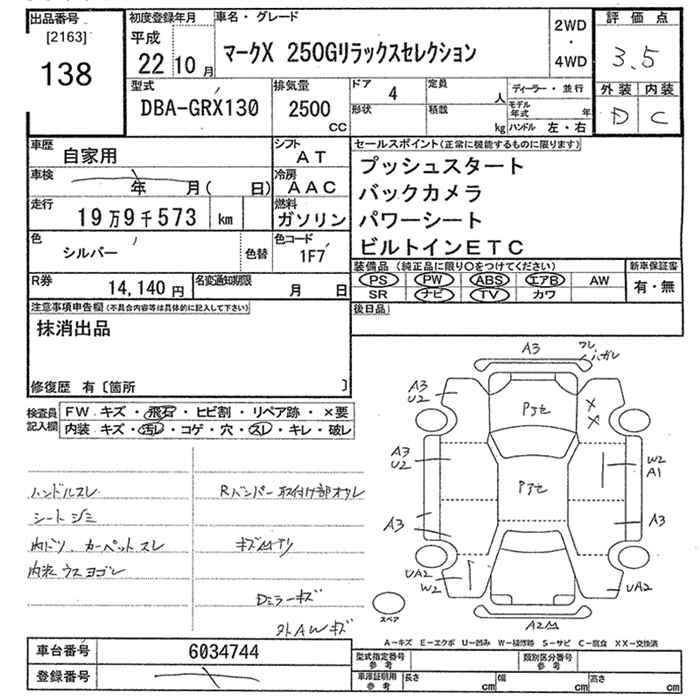 出品番号
[2163]
138
初度登録年月
平成
22 10 月
車名・グレード
マークX 250Gリラックスセレクション
2WD
・
4WD
評価点
3.5
外装 内装
D C
型式
DBA-GRX130
排気量
2500
CC
ドア 4
形状
定員 人
積載 kg
ディーラー・並行
モデル年式 年
ハンドル 左・右
車歴
自家用
シフト
AT
車検
年 月( 日)
冷房
AAC
走行
19万9千573 km
燃料
ガソリン
色
シルバー
色替
色コード
1F7
R券
14,140 円
名変通知期限
月 日
セールスポイント(正常に機能するものに限ります)
プッシュスタート
バックカメラ
パワーシート
ビルトインETC
装備品 (純正品に限り○をつけてください)
PS PW ABS エアB AW
SR ナビ TV カワ
新車保証書
有・無
後日品
注意事項申告欄(不具合内容等は具体的に記入して下さい)
抹消出品
修復歴 有〔箇所 〕
検査員記入欄
FW キズ・飛石・ヒビ割・リペア跡・×要
内装 キズ・汚レ・コゲ・穴・スレ・キレ・破レ
ハンドルスレ
シートジミ
内ドリ、カーペットスレ
内装ウスヨゴレ
Rバンパー取付け部オクレ
Dミラーキズ
外AWキズ
A3
ハガレ
A3
U2
Pタモ
X
X
A3
U2
W2
A1
Pタモ
A3
A3
UA2
W2
UA2
A2
スペア
A-キズ E-エクボ U-凹み W-補修跡 S-サビ C-腐食 XX-交換済
車台番号 6034744
登録番号
型式指定番号
参考
類別区分番号
参考
車庫証明用
参考
長さ cm 幅 cm 高さ cm